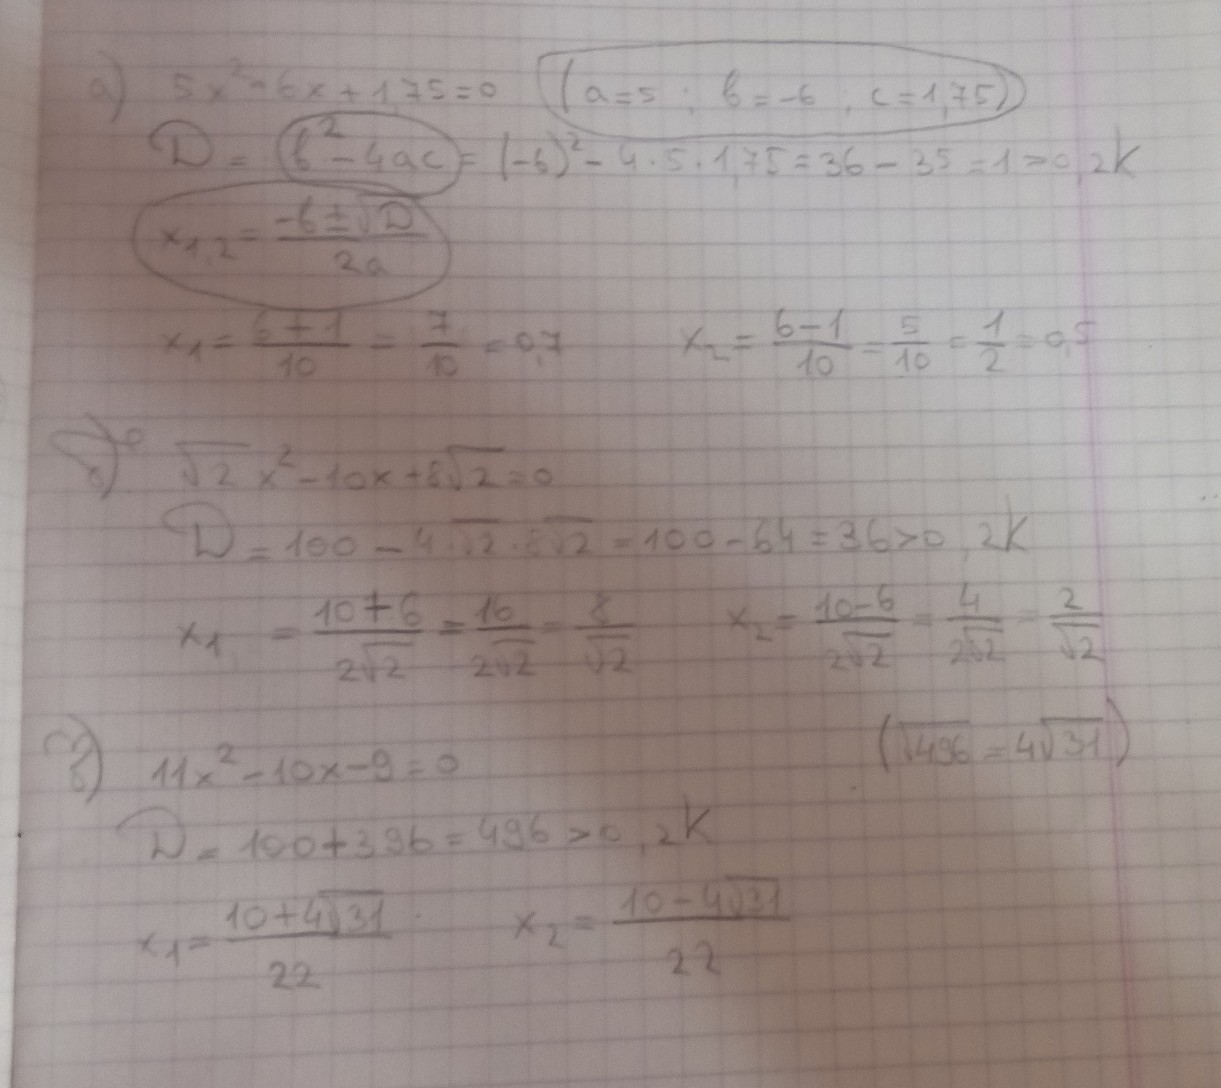 а) 5x² - 6x + 1,75 = 0 (a = 5 ; b = -6 ; c = 1,75)
D = b² - 4ac = (-6)² - 4·5·1,75 = 36 - 35 = 1 > 0, 2K
x₁,₂ = (-b ± √D)/2a
x₁ = (6+1)/10 = 7/10 = 0,7 x₂ = (6-1)/10 = 5/10 = 1/2 = 0,5
б) √2 x² - 10x + 8√2 = 0
D = 100 - 4·√2·8√2 = 100 - 64 = 36 > 0, 2K
x₁ = (10+6)/2√2 = 16/2√2 = 8/√2 x₂ = (10-6)/2√2 = 4/2√2 = 2/√2
в) 11x² - 10x - 9 = 0 (√496 = 4√31)
D = 100 + 396 = 496 > 0, 2K
x₁ = (10+4√31)/22 x₂ = (10-4√31)/22